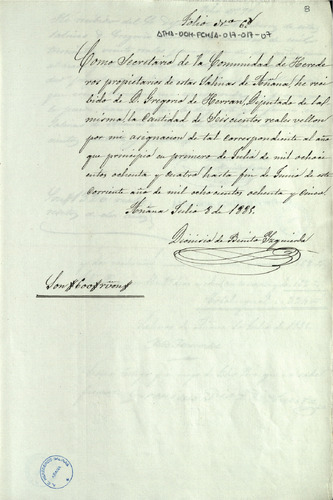 8
Folio No. 6.
ATHA-DAH-FCMSA-017-017-07
Como Secretario de la Comunidad de Herede
ros propietarios de estas Salinas de Añana, he re
cibido de D. Gregorio de Herran, Diputado de la
misma la Cantidad de Seiscientos reales vellon
por mi asignacion de tal correspondiente al año
que principió en primero de Julio de mil ochoci
entos ochenta y cuatro hasta fin de Junio de este
corriente año de mil ochocientos ochenta y cinco.
Añana Julio 3 de 1885.
Dionisio de Benito Izquierdo
Son #600# rs von#